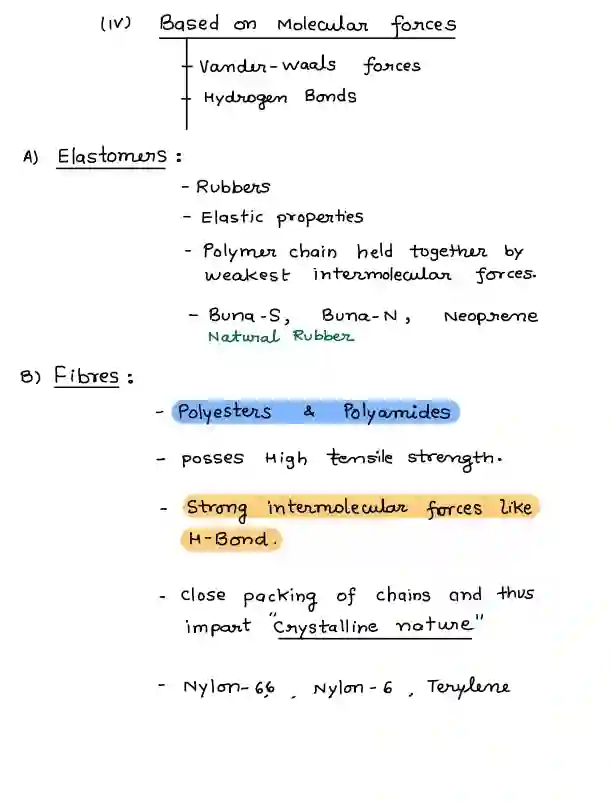 (IV) Based on Molecular forces
Vander-waals forces
Hydrogen Bonds
A) Elastomers :
- Rubbers
- Elastic properties
- Polymer chain held together by
weakest intermolecular forces.
- Buna-S, Buna-N, Neoprene
Natural Rubber
B) Fibres :
- Polyesters & Polyamides
- posses High tensile strength.
- Strong intermolecular forces like
H-Bond.
- close packing of chains and thus
impart "Crystalline nature"
- Nylon-6,6 , Nylon-6 , Terylene